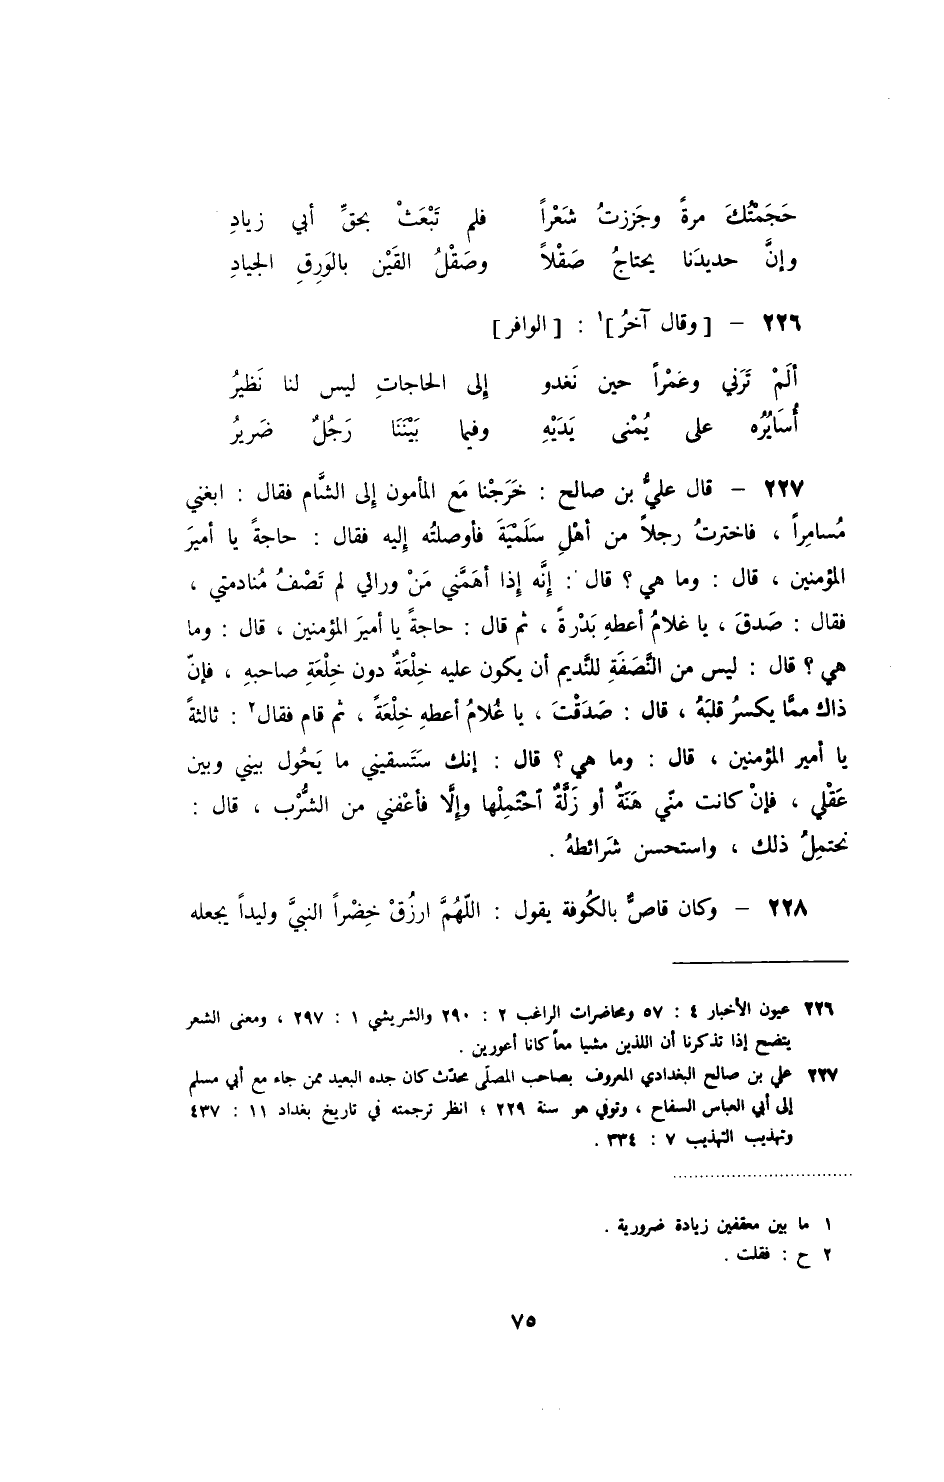 حَجَمْتُكَ مرةً وجَززتُ شَعْراً فلم تَبْعَثْ بحقِّ أبي زيادِ
وإنَّ حديدَنا يحتاجُ صَقْلاً وصَقْلُ القَيْن بالوَرِقِ الجيادِ
٢٢٦ – [ وقال آخرُ ]١ : [ الوافر ]
ألَمْ تَرَني وعَمْراً حين نَغدو إلى الحاجاتِ ليس لنا نَظيرُ
أُسَايُرُه على يُمْنى يَدَيْهِ وفيما بَيْنَنَا رَجُلٌ ضَريرُ
٢٢٧ – قال عليُّ بن صالح : خَرَجْنا مَع المأمون إلى الشَّام فقال : ابغني
مُسامِراً ، فاخترتُ رجلاً من أهْلِ سَلَمْيَةَ فأوصلتُه إليه فقال : حاجةً يا أميرَ
المؤمنين ، قال : وما هي ؟ قال : إنَّه إذا أهَمَّني مَنْ ورائي لم تَصْفُ مُنادمتي ،
فقال : صَدقَ ، يا غلامُ أعطهِ بَدْرةً ، ثم قال : حاجةً يا أميرَ المؤمنين ، قال : وما
هي ؟ قال : ليس من النَّصَفَةِ للنَّديم أن يكون عليه خِلْعَةٌ دون خِلْعَةِ صاحبهِ ، فإنّ
ذاك ممَّا يكسرُ قلبَهُ ، قال : صَدَقْتَ ، يا غُلامُ أعطهِ خِلْعَةً ، ثم قام فقال٢ : ثالثةً
يا أمير المؤمنين ، قال : وما هي ؟ قال : إنك سَتَسقيني ما يَحُول بيني وبين
عَقْلي ، فإنْ كانت منّي هَنَةٌ أو زَلَّةٌ آحْتَمِلْها وإلَّا فأعْفني من الشُّرْب ، قال :
نحتمِلُ ذلك ، واستحسن شَرائطهُ .
٢٢٨ – وكان قاصٌّ بالكُوفة يقول : اللّهُمَّ ارزُقْ خضْراً النبيَّ وليداً يجعله
٢٢٦ عيون الأخبار ٤ : ٥٧ ومحاضرات الراغب ٢ : ٢٩٠ والشريشي ١ : ٢٩٧ ، ومعنى الشعر
يتضح إذا تذكرنا أن اللذين مشيا معاً كانا أعورين .
٢٢٧ علي بن صالح البغدادي المعروف بصاحب المصلّى محدّث كان جده البعيد ممن جاء مع أبي مسلم
إلى أبي العباس السفاح ، وتوفي هو سنة ٢٢٩ ؛ انظر ترجمته في تاريخ بغداد ١١ : ٤٣٧
وتهذيب التهذيب ٧ : ٣٣٤ .
١ ما بين معقفين زيادة ضرورية .
٢ ح : فقلت .
٧٥